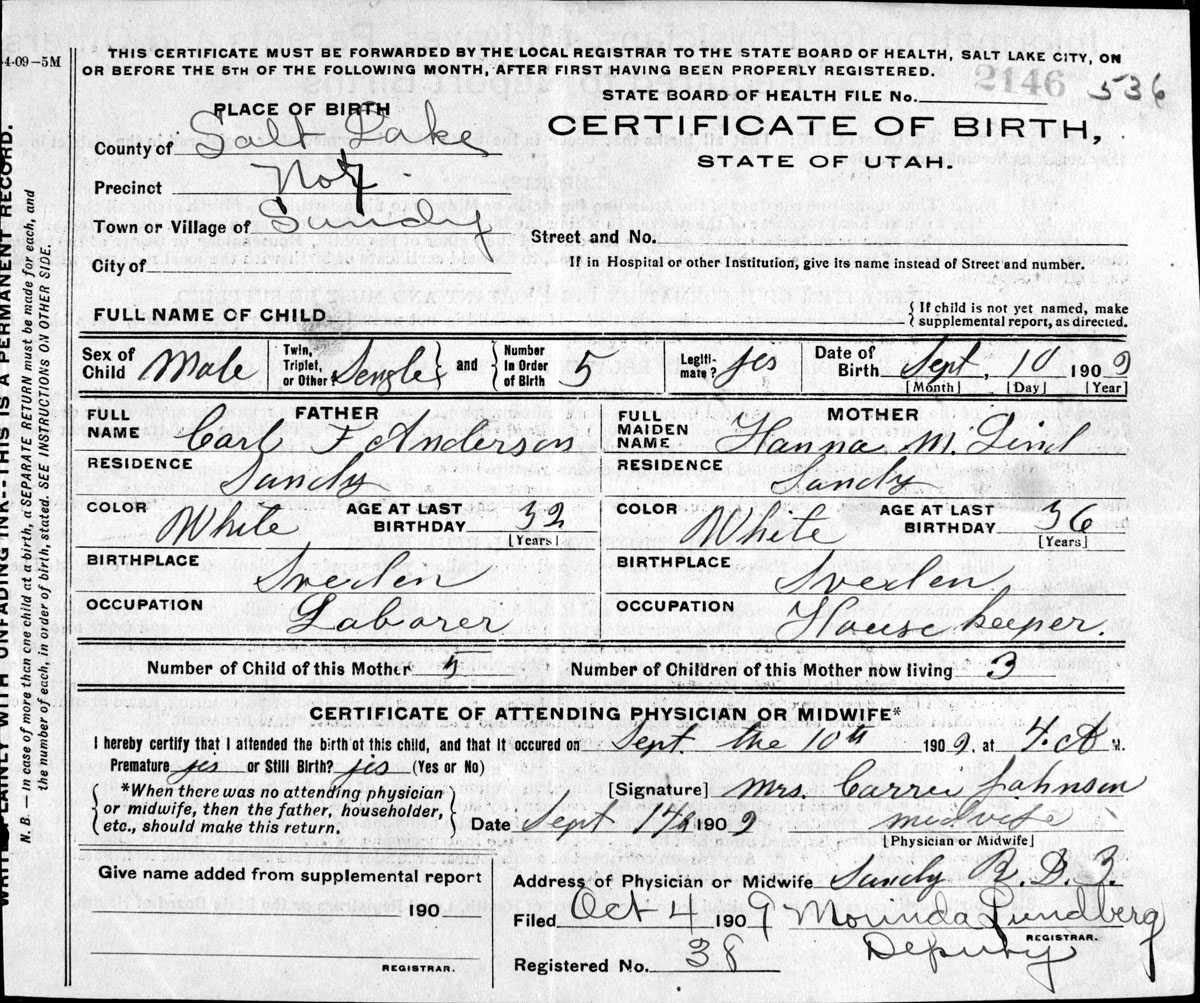 4-09-5M
THIS CERTIFICATE MUST BE FORWARDED BY THE LOCAL REGISTRAR TO THE STATE BOARD OF HEALTH, SALT LAKE CITY, ON
OR BEFORE THE 5TH OF THE FOLLOWING MONTH, AFTER FIRST HAVING BEEN PROPERLY REGISTERED.
2146 536
STATE BOARD OF HEALTH FILE No.
PLACE OF BIRTH
CERTIFICATE OF BIRTH,
STATE OF UTAH.
County of Salt Lake
Precinct No 4
Town or Village of Sandy
Street and No.
City of
If in Hospital or other Institution, give its name instead of Street and number.
FULL NAME OF CHILD
{If child is not yet named, make
supplemental report, as directed.
Sex of Child Male
Twin, Triplet, or Other? Single and Number In Order of Birth 5
Legitimate? yes
Date of Birth Sept. 10 1909
[Month] [Day] [Year]
FATHER
FULL NAME Carl F Anderson
RESIDENCE Sandy
COLOR White AGE AT LAST BIRTHDAY 32
[Years]
BIRTHPLACE Sweden
OCCUPATION Laborer
MOTHER
FULL MAIDEN NAME Hanna M. Lind
RESIDENCE Sandy
COLOR White AGE AT LAST BIRTHDAY 36
[Years]
BIRTHPLACE Sweden
OCCUPATION House keeper.
Number of Child of this Mother 5 Number of Children of this Mother now living 3
CERTIFICATE OF ATTENDING PHYSICIAN OR MIDWIFE*
I hereby certify that I attended the birth of this child, and that it occured on Sept. the 10th 1909, at 4. A M.
Premature yes or Still Birth? yes (Yes or No)
*When there was no attending physician
or midwife, then the father, householder,
etc., should make this return.
[Signature] Mrs. Carrie Johnson
Date Sept 17th 1909 midwife
[Physician or Midwife]
Give name added from supplemental report
190
REGISTRAR.
Address of Physician or Midwife Sandy R. D. 3.
Filed Oct 4 1909 Mourinda Lundberg
REGISTRAR.
Deputy
Registered No. 38
PLAINLY WITH UNFADING INK--THIS IS A PERMANENT RECORD.
N. B. — In case of more then one child at a birth, a SEPARATE RETURN must be made for each, and
the number of each, in order of birth, stated. SEE INSTRUCTIONS ON OTHER SIDE.